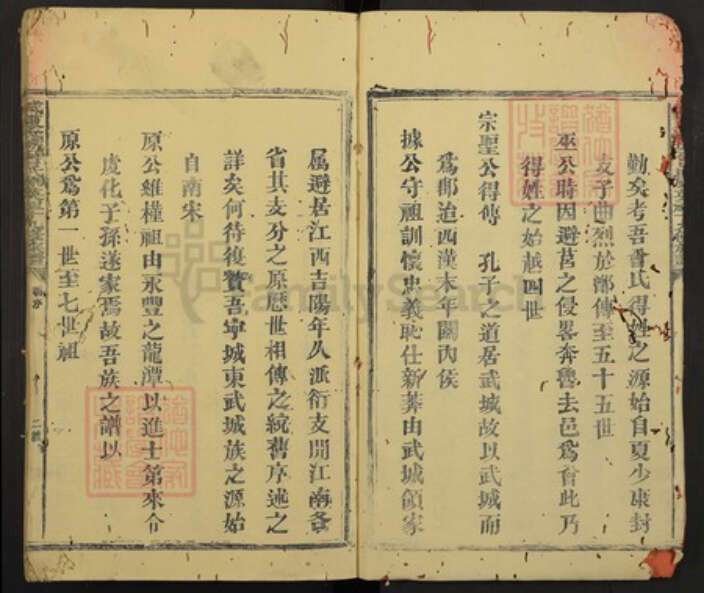 勤矣考吾曾氏得姓之源始自夏少康封
次子曲烈於鄫傳至五十五世
巫公時因避莒之侵畧奔魯去邑爲曾此乃
得姓之始越四世
宗聖公得傳 孔子之道居武城故以武城而
爲郡迨西漢末年關內侯
據公守祖訓懷忠義恥仕新莽由武城領家
屬避居江西吉陽年久派衍支開江南各
省其支分之原歷世相傳之統舊序述之
詳矣何待復贅吾寧城東武城族之源始
自南宋
原公維權祖由永豐之龍潭以進士第來令
虔化子孫遂家焉故吾族之譜以
原公爲第一世至七世祖
FamilySearch